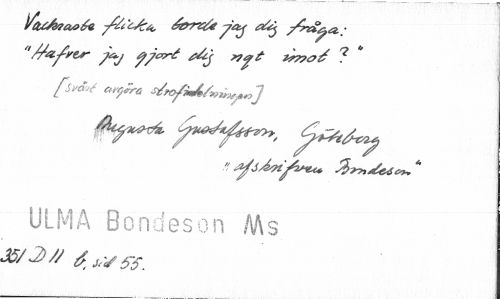 Vackraste flicka borde jag dig fråga:
"Hafver jag gjort dig ngt imot?"
[svårt avgöra strofindelningen]
Augusta Gustafsson, Göteborg
"afskrifven Bondeson"
ULMA Bondeson Ms
351 D 11 b. sid 55.